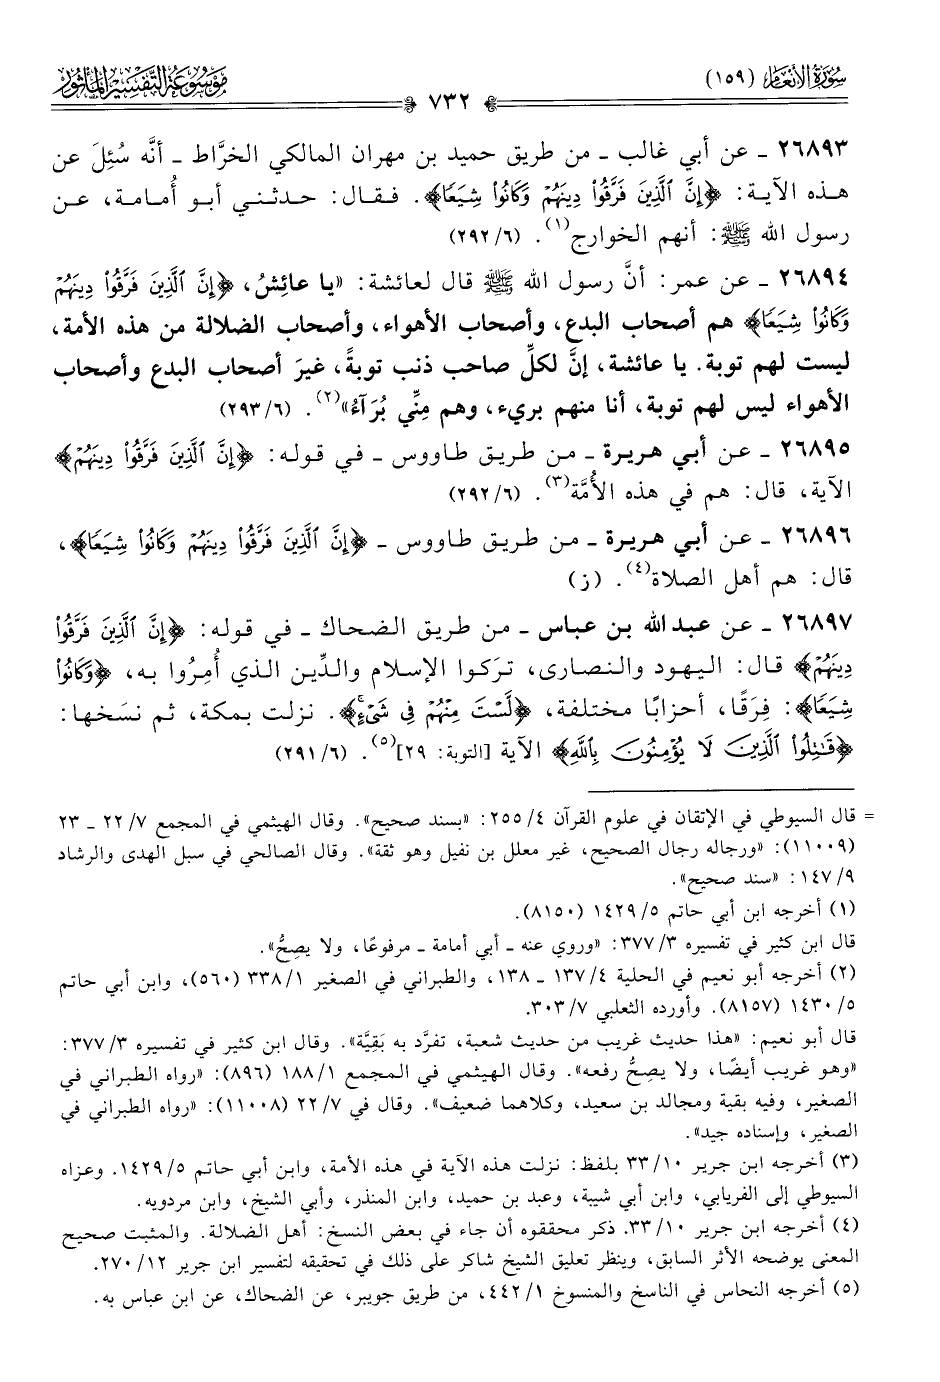 سورة الأنعام (١٥٩)
٧٣٢
موسوعة التفسير المأثور
٢٦٨٩٣ ـ عن أبي غالب ـ من طريق حميد بن مهران المالكي الخرَّاط ـ أنَّه سُئِلَ عن
هذه الآية: ﴿إِنَّ ٱلَّذِينَ فَرَّقُوا۟ دِينَهُمْ وَكَانُوا۟ شِيَعًا﴾. فقال: حدثني أبو أُمامة، عن
رسول الله ﷺ: أنهم الخوارج(١). (٦/ ٢٩٢)
٢٦٨٩٤ ـ عن عمر: أنَّ رسول الله ﷺ قال لعائشة: «يا عائِشُ، ﴿إِنَّ ٱلَّذِينَ فَرَّقُوا۟ دِينَهُمْ
وَكَانُوا۟ شِيَعًا﴾ هم أصحاب البدع، وأصحاب الأهواء، وأصحاب الضلالة من هذه الأمة،
ليست لهم توبة. يا عائشة، إنَّ لكلِّ صاحب ذنب توبةً، غيرَ أصحاب البدع وأصحاب
الأهواء ليس لهم توبة، أنا منهم بريء، وهم مِنِّي بُرَآءُ»(٢). (٦/ ٢٩٣)
٢٦٨٩٥ ـ عن أبي هريرة ـ من طريق طاووس ـ في قوله: ﴿إِنَّ ٱلَّذِينَ فَرَّقُوا۟ دِينَهُمْ﴾
الآية، قال: هم في هذه الأُمَّة(٣). (٦/ ٢٩٢)
٢٦٨٩٦ ـ عن أبي هريرة ـ من طريق طاووس ـ ﴿إِنَّ ٱلَّذِينَ فَرَّقُوا۟ دِينَهُمْ وَكَانُوا۟ شِيَعًا﴾،
قال: هم أهل الصلاة(٤). (ز)
٢٦٨٩٧ ـ عن عبد الله بن عباس ـ من طريق الضحاك ـ في قوله: ﴿إِنَّ ٱلَّذِينَ فَرَّقُوا۟
دِينَهُمْ﴾ قال: اليهود والنصارى، تركوا الإسلام والدِّين الذي أُمِرُوا به، ﴿وَكَانُوا۟
شِيَعًا﴾: فِرَقًا، أحزابًا مختلفة، ﴿لَّسْتَ مِنْهُمْ فِى شَىْءٍ﴾. نزلت بمكة، ثم نسَخها:
﴿قَٰتِلُوا۟ ٱلَّذِينَ لَا يُؤْمِنُونَ بِٱللَّهِ﴾ الآية [التوبة: ٢٩](٥). (٦/ ٢٩١)
= قال السيوطي في الإتقان في علوم القرآن ٤/ ٢٥٥: «بسند صحيح». وقال الهيثمي في المجمع ٧/ ٢٢ ـ ٢٣
(١١٠٠٩): «ورجاله رجال الصحيح، غير معلل بن نفيل وهو ثقة». وقال الصالحي في سبل الهدى والرشاد
٩/ ١٤٧: «سند صحيح».
(١) أخرجه ابن أبي حاتم ٥/ ١٤٢٩ (٨١٥٠).
قال ابن كثير في تفسيره ٣/ ٣٧٧: «وروي عنه ـ أبي أمامة ـ مرفوعًا، ولا يصِحُّ».
(٢) أخرجه أبو نعيم في الحلية ٤/ ١٣٧ ـ ١٣٨، والطبراني في الصغير ١/ ٣٣٨ (٥٦٠)، وابن أبي حاتم
٥/ ١٤٣٠ (٨١٥٧). وأورده الثعلبي ٧/ ٣٠٣.
قال أبو نعيم: «هذا حديث غريب من حديث شعبة، تفرَّد به بَقِيَّة». وقال ابن كثير في تفسيره ٣/ ٣٧٧:
«وهو غريب أيضًا، ولا يصِحُّ رفعه». وقال الهيثمي في المجمع ١/ ١٨٨ (٨٩٦): «رواه الطبراني في
الصغير، وفيه بقية ومجالد بن سعيد، وكلاهما ضعيف». وقال في ٧/ ٢٢ (١١٠٠٨): «رواه الطبراني في
الصغير، وإسناده جيد».
(٣) أخرجه ابن جرير ١٠/ ٣٣ بلفظ: نزلت هذه الآية في هذه الأمة، وابن أبي حاتم ٥/ ١٤٢٩. وعزاه
السيوطي إلى الفريابي، وابن أبي شيبة، وعبد بن حميد، وابن المنذر، وأبي الشيخ، وابن مردويه.
(٤) أخرجه ابن جرير ١٠/ ٣٣. ذكر محققوه أن جاء في بعض النسخ: أهل الضلالة. والمثبت صحيح
المعنى يوضحه الأثر السابق، وينظر تعليق الشيخ شاكر على ذلك في تحقيقه لتفسير ابن جرير ١٢/ ٢٧٠.
(٥) أخرجه النحاس في الناسخ والمنسوخ ١/ ٤٤٢، من طريق جويبر، عن الضحاك، عن ابن عباس به.